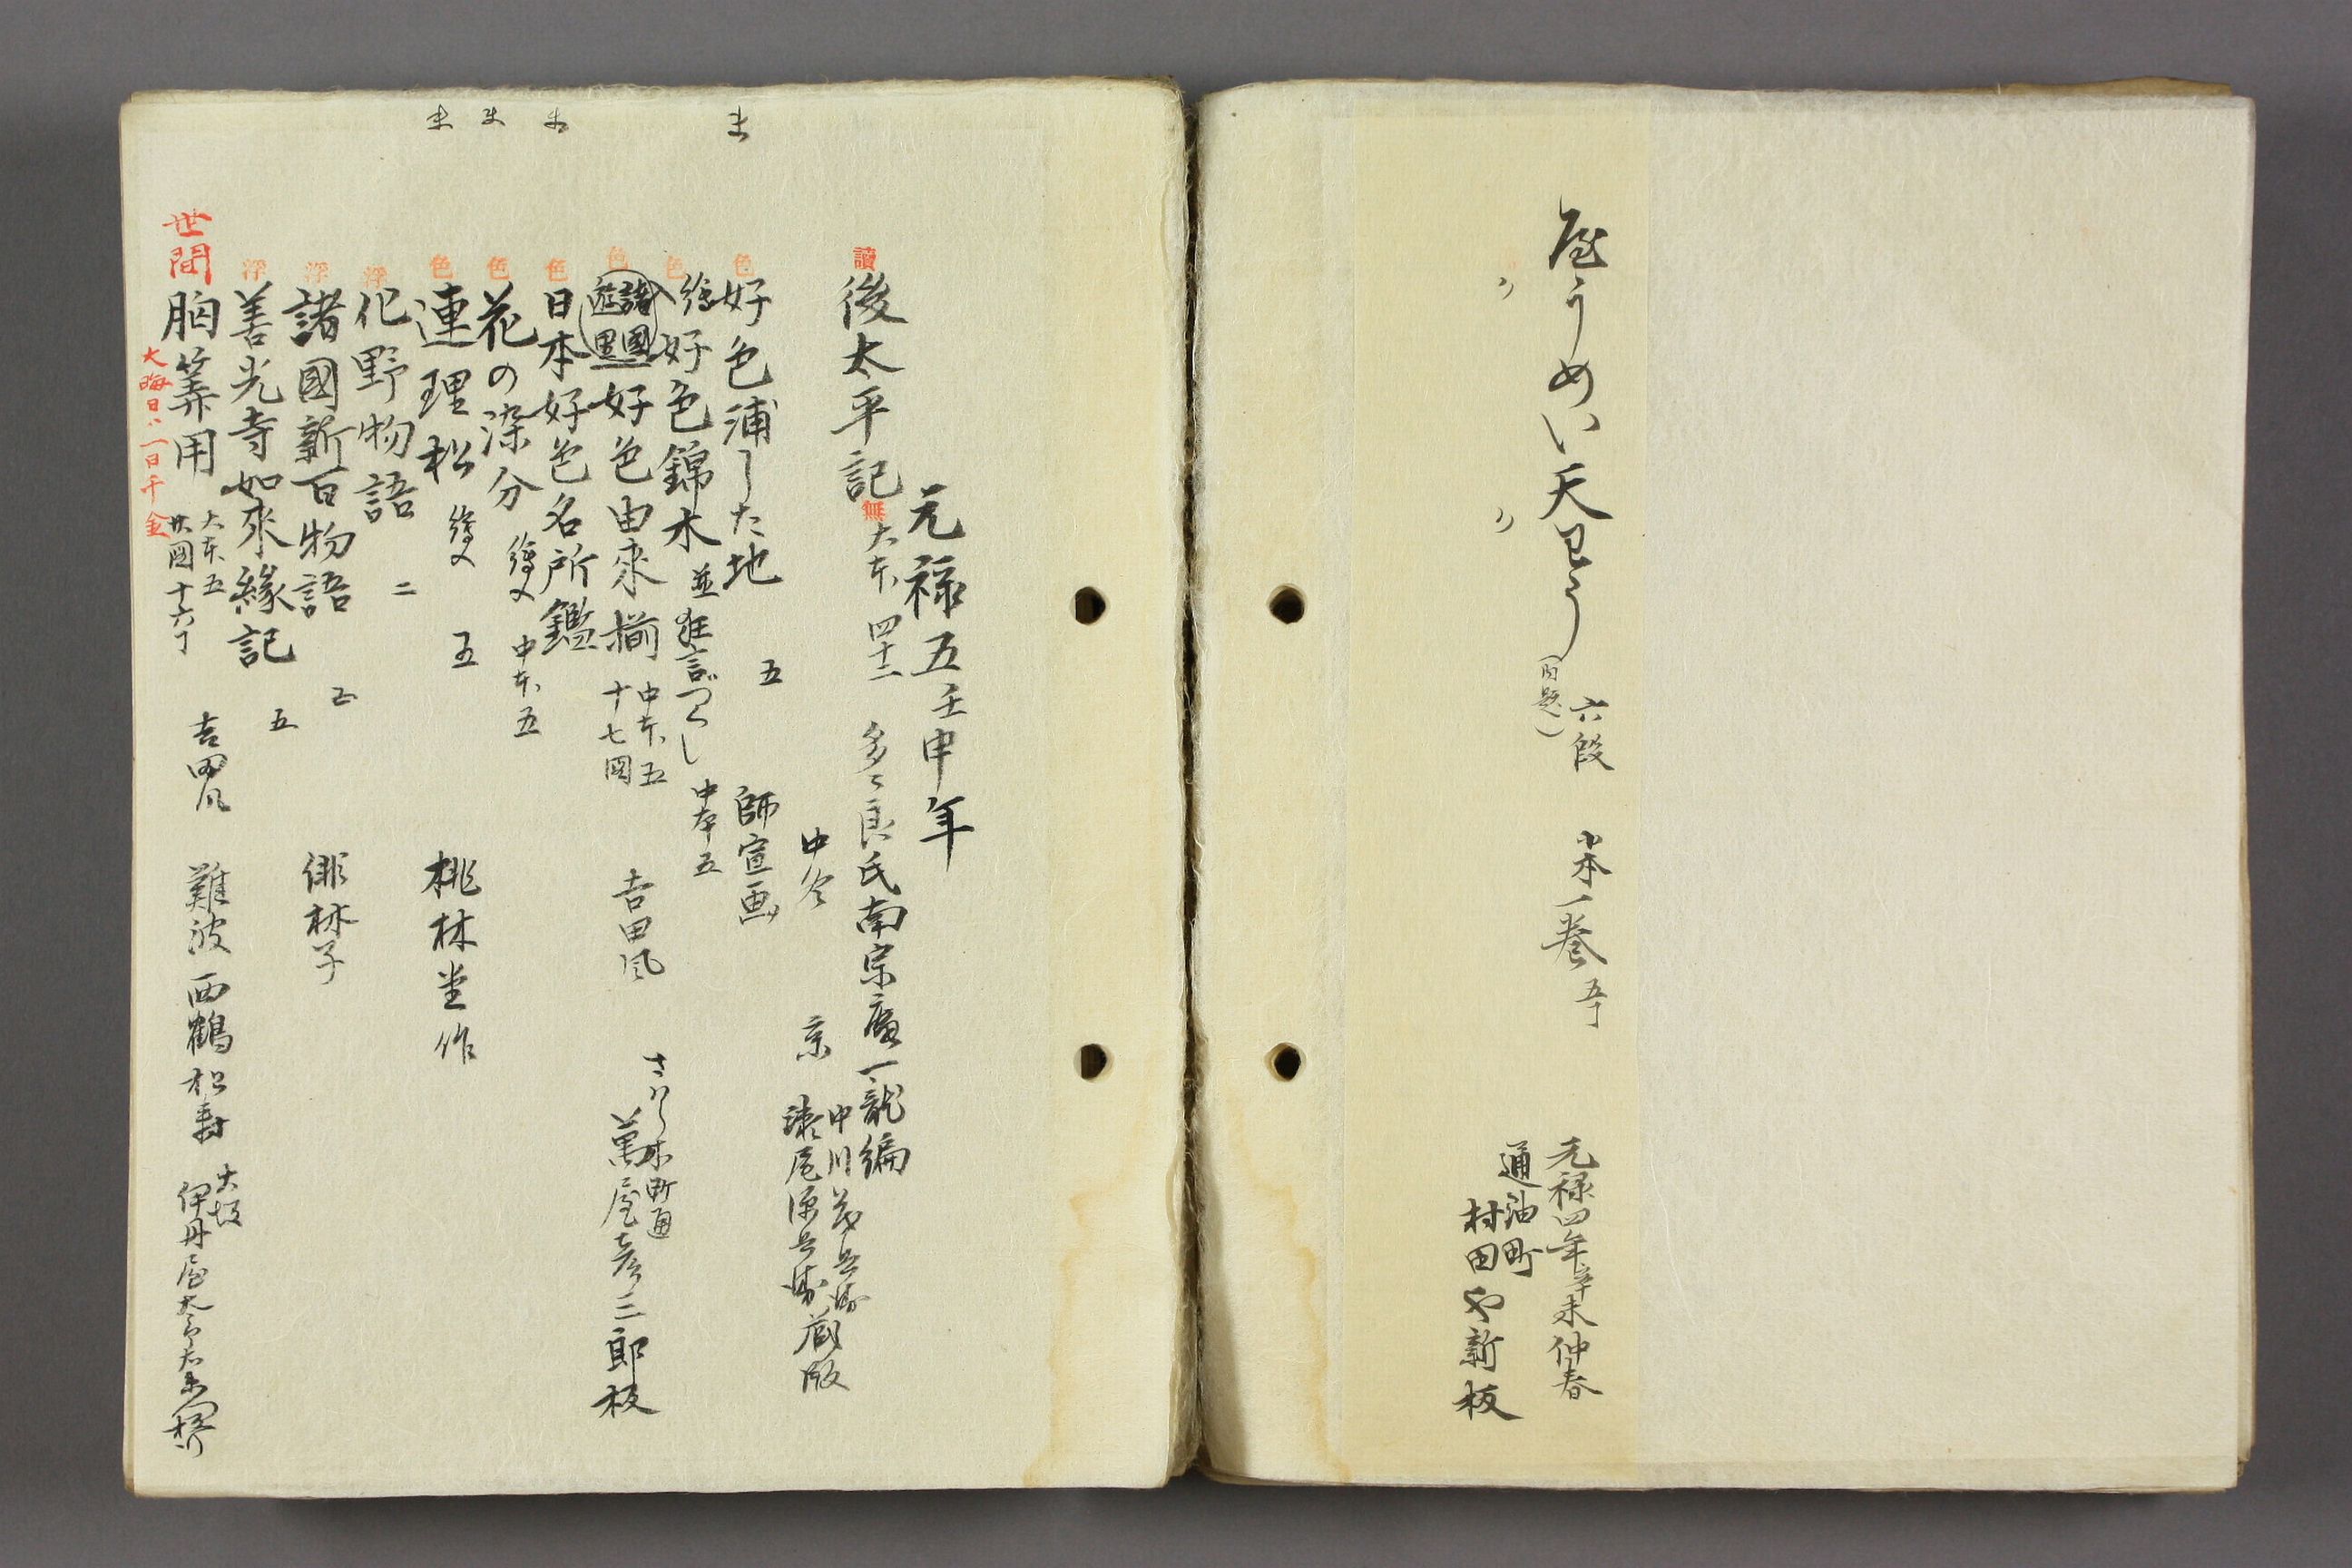 屋うめい天王う
（内題）
六段
半本一巻
元禄四年辛未仲春
通油町
村田や新板
元禄五壬申年
讀 後太平記 無 大本 四十二 多々良氏南宗庵一龍編
中川茂兵衛
京 蔵版
色 好色浦した地 五 師宣画
色 好色錦木 並狂言づくし 中本五
色 諸國遊里 好色由來揃 中本五 十七図 吉田風
さハら木町通
萬屋彦三郎板
色 日本好色名所鑑
色 花の染分 繪入 中本五
色 連理松 繪入 五 桃林堂作
浮 化野物語 二
浮 諸國新百物語 五 俳林子
浮 善光寺如來緣記 五
世間 胸筭用 大本五 廿図 十六丁 吉田風 難波 西鶴松壽
大坂
大晦日ハ一日千金